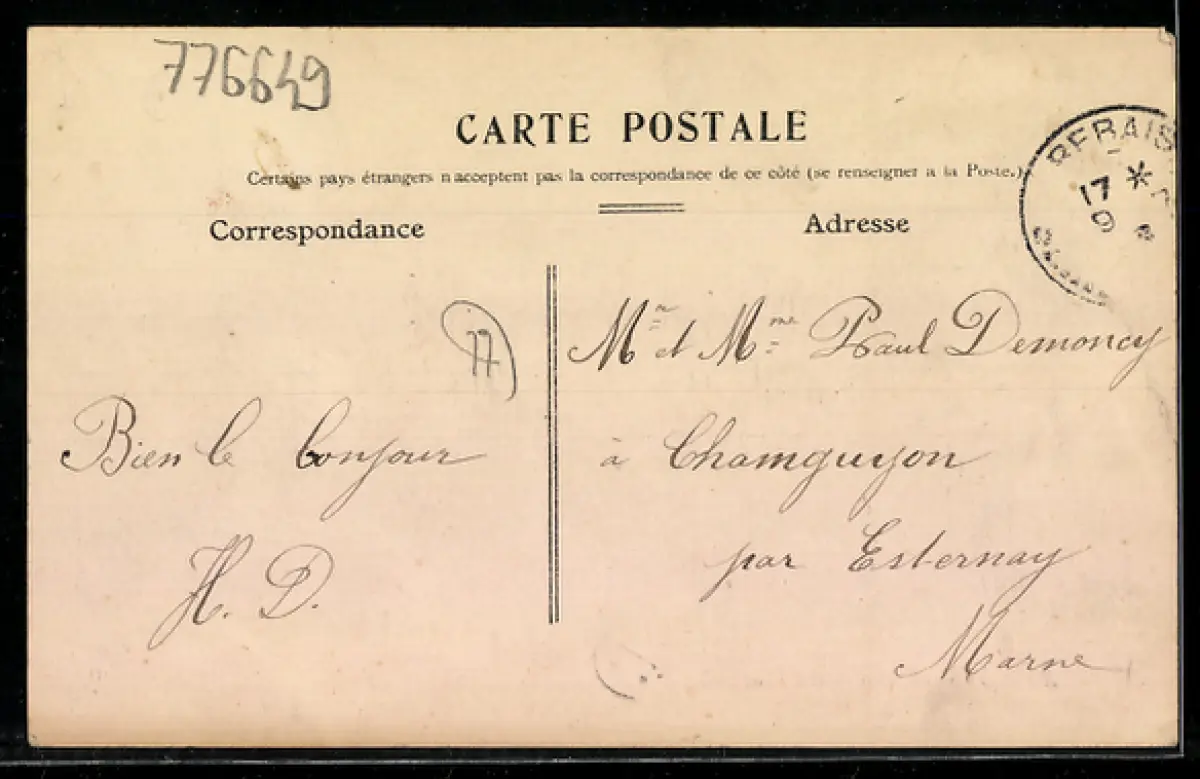 776649
CARTE POSTALE
Certains pays étrangers n'acceptent pas la correspondance de ce côté (se renseigner à la Poste.)
Correspondance
Adresse
REBAIS
17
9
77
Mr et Mme Paul Demoncy
à Champguyon
par Esternay
Marne
Bien le bonjour
H. D.